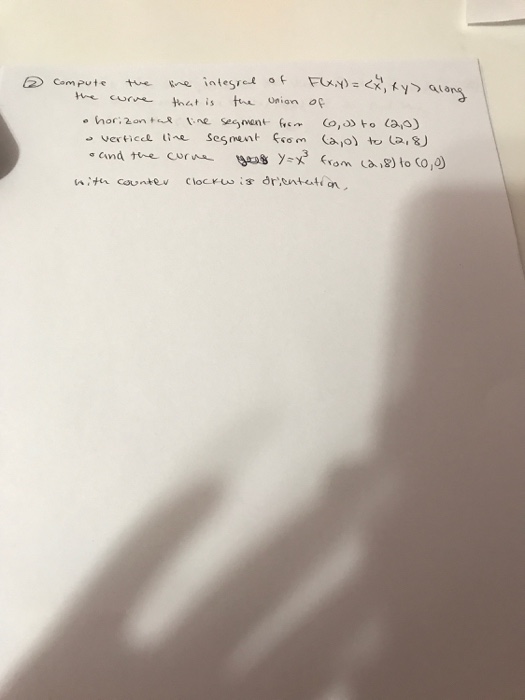 ② Compute the line integral of F(x,y) = <x⁴, xy> along
the curve that is the union of
• horizontal line segment from (0,0) to (2,0)
• vertical line segment from (2,0) to (2,8)
• and the curve y=x³ from (2,8) to (0,0)
with counter clockwis orientation.